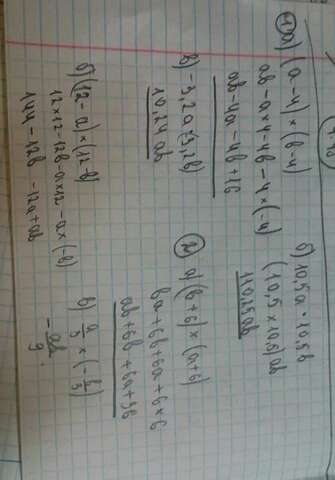 1) а) (a-4) × (b-4)
ab - a×4 - 4b - 4×(-4)
ab - 4a - 4b + 16
б) 10,5a · 10,5b
(10,5 × 10,5)ab
110,25ab
в) -3,2a·(-3,2b)
10,24 ab
2) а) (b+6) × (a+6)
ba + 6b + 6a + 6×6
ab + 6b + 6a + 36
б) (12-a) × (12-b)
12×12 - 12b - a×12 - a×(-b)
144 - 12b - 12a + ab
в) a/3 × (-b/3)
- ab/9.